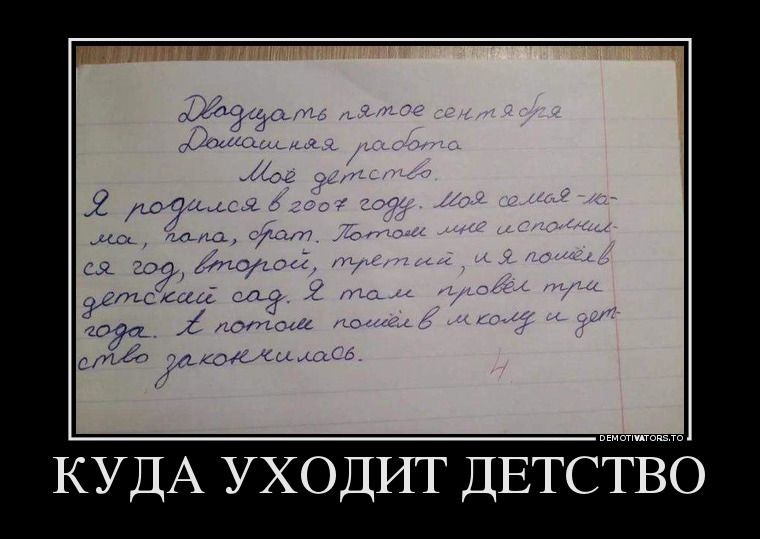 Двадцать пятое сентября
Домашняя работа
Моё детство.
Я родился в 2007 году. Моя семья - ма-
ма, папа, брат. Потом мне исполнил-
ся год, второй, третий, и я пошёл в
детский сад. Я там провёл три
года. А потом пошёл в школу и дет-
ство закончилась.
4
DEMOTIVATORS.TO
КУДА УХОДИТ ДЕТСТВО